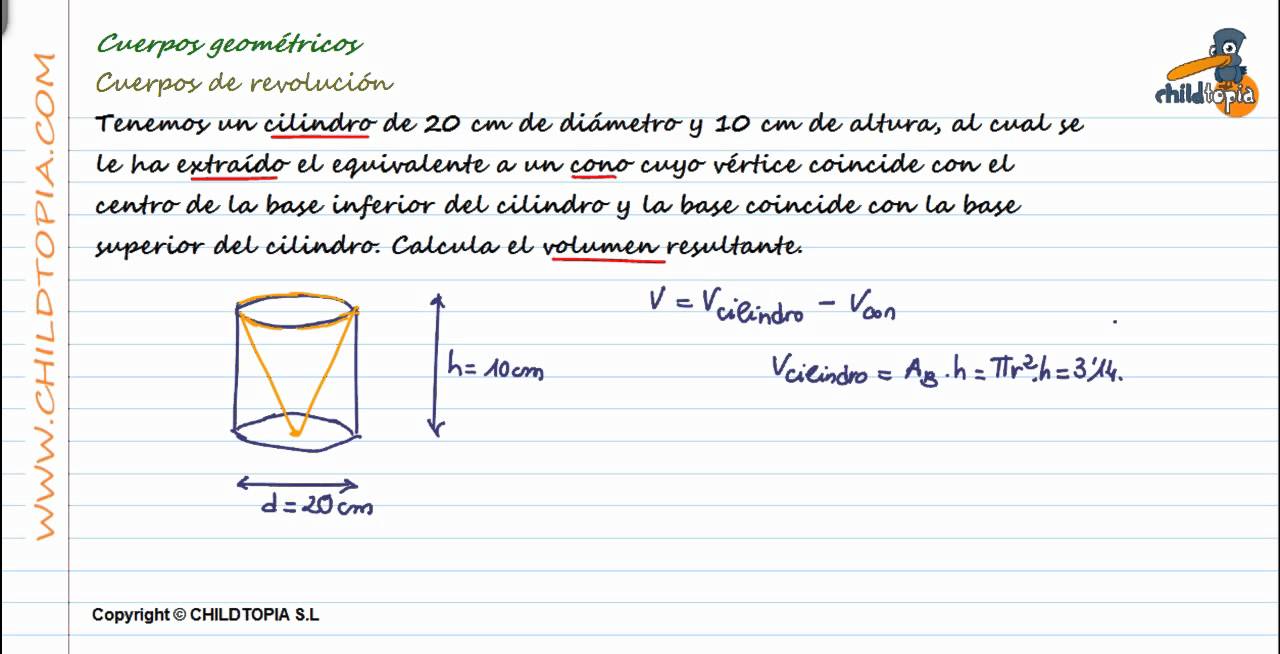 Cuerpos geométricos
Cuerpos de revolución
childtopia
Tenemos un cilindro de 20 cm de diámetro y 10 cm de altura, al cual se
le ha extraído el equivalente a un cono cuyo vértice coincide con el
centro de la base inferior del cilindro y la base coincide con la base
superior del cilindro. Calcula el volumen resultante.
V = Vcilindro - Vcon
h = 10 cm
Vcilindro = AB · h = πr²·h = 3'14.
d = 20 cm
Copyright © CHILDTOPIA S.L
WWW.CHILDTOPIA.COM